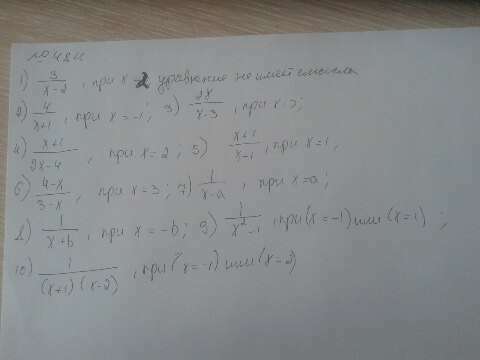 1) 3/(x-2), при x = 2 уравнение не имеет смысла
2) 4/(x+1), при x = -1; 3) 2x/(x-3), при x = 3;
4) (x+1)/(2x-4), при x = 2; 5) (x+1)/(x-1), при x = 1;
6) (4-x)/(3-x), при x = 3; 7) 1/(x-a), при x = a;
8) 1/(x+b), при x = -b; 9) 1/(x²-1), при (x = -1) или (x = 1);
10) 1/((x+1)(x-2)), при (x = -1) или (x = 2)